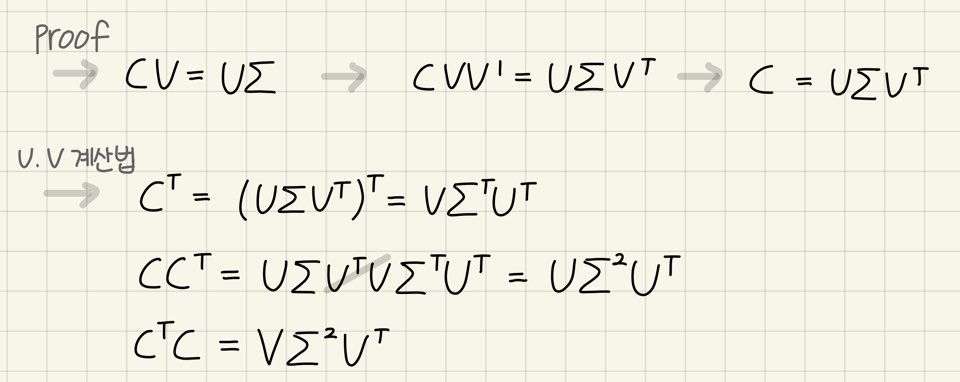 Proof
→ CV = UΣ → CVV' = UΣVᵀ → C = UΣVᵀ
U. V 계산법
→ Cᵀ = (UΣVᵀ)ᵀ = VΣᵀUᵀ
CCᵀ = UΣVᵀVΣᵀUᵀ = UΣ²Uᵀ
CᵀC = VΣ²Uᵀ